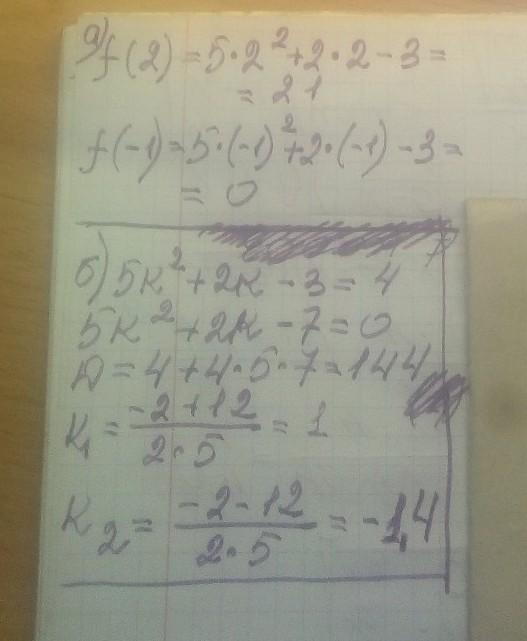 а) f(2) = 5·2² + 2·2 - 3 =
= 21
f(-1) = 5·(-1)² + 2·(-1) - 3 =
= 0
б) 5к² + 2к - 3 = 4
5к² + 2к - 7 = 0
D = 4 + 4·5·7 = 144
к₁ = (-2+12)/(2·5) = 1
к₂ = (-2-12)/(2·5) = -1,4